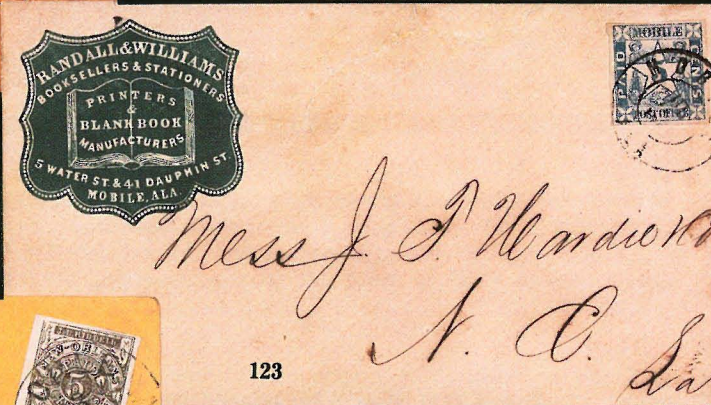 RANDALL & WILLIAMS
BOOKSELLERS & STATIONERS
PRINTERS
&
BLANK BOOK
MANUFACTURERS
5 WATER ST. & 41 DAUPHIN ST.
MOBILE, ALA
MOBILE
PAID
5
CENTS
POST OFFICE
Mess J. P. Hardie
N. O.
La
123
5